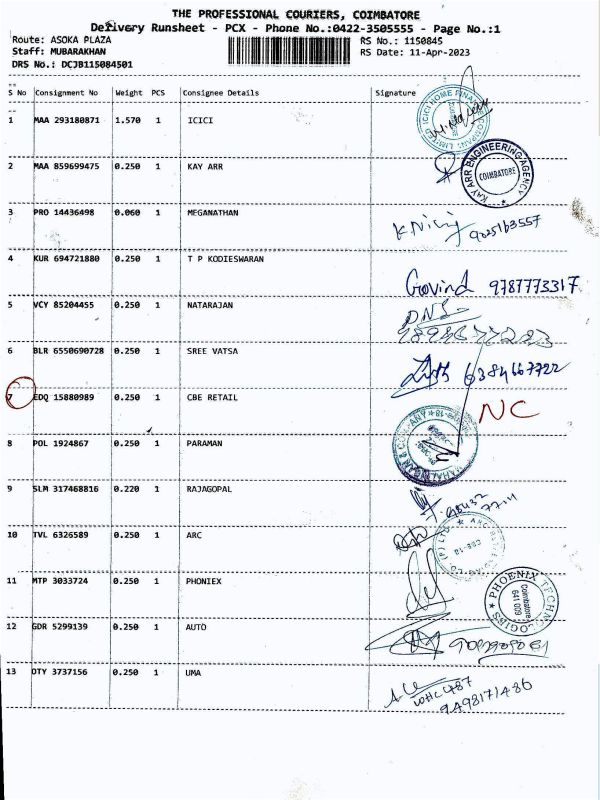 THE PROFESSIONAL COURIERS, COIMBATORE
Delivery Runsheet - PCX - Phone No.:0422-3505555 - Page No.:1
Route: ASOKA PLAZA RS No.: 1150845
Staff: MUBARAKHAN RS Date: 11-Apr-2023
DRS No.: DCJB115084501
S No Consignment No Weight PCS Consignee Details Signature
1 MAA 293180871 1.570 1 ICICI
ICICI HOME FINANCE COMPANY LIMITED
2 MAA 859699475 0.250 1 KAY ARR
KAY ARR ENGINEERING AGENCY COIMBATORE
3 PRO 14436498 0.060 1 MEGANATHAN
9025163557
4 KUR 694721880 0.250 1 T P KODIESWARAN
Govind 9787773317
5 VCY 85204455 0.250 1 NATARAJAN
6 BLR 6550690728 0.250 1 SREE VATSA
6384667722
7 EDQ 15880989 0.250 1 CBE RETAIL
NC
8 POL 1924867 0.250 1 PARAMAN
9 SLM 317468816 0.220 1 RAJAGOPAL
10 TVL 6326589 0.250 1 ARC
11 MTP 3033724 0.250 1 PHONIEX
PHOENIX TECHNOLOGIES Coimbatore 641 009
12 GDR 5299139 0.250 1 AUTO
13 OTY 3737156 0.250 1 UMA
9498171486